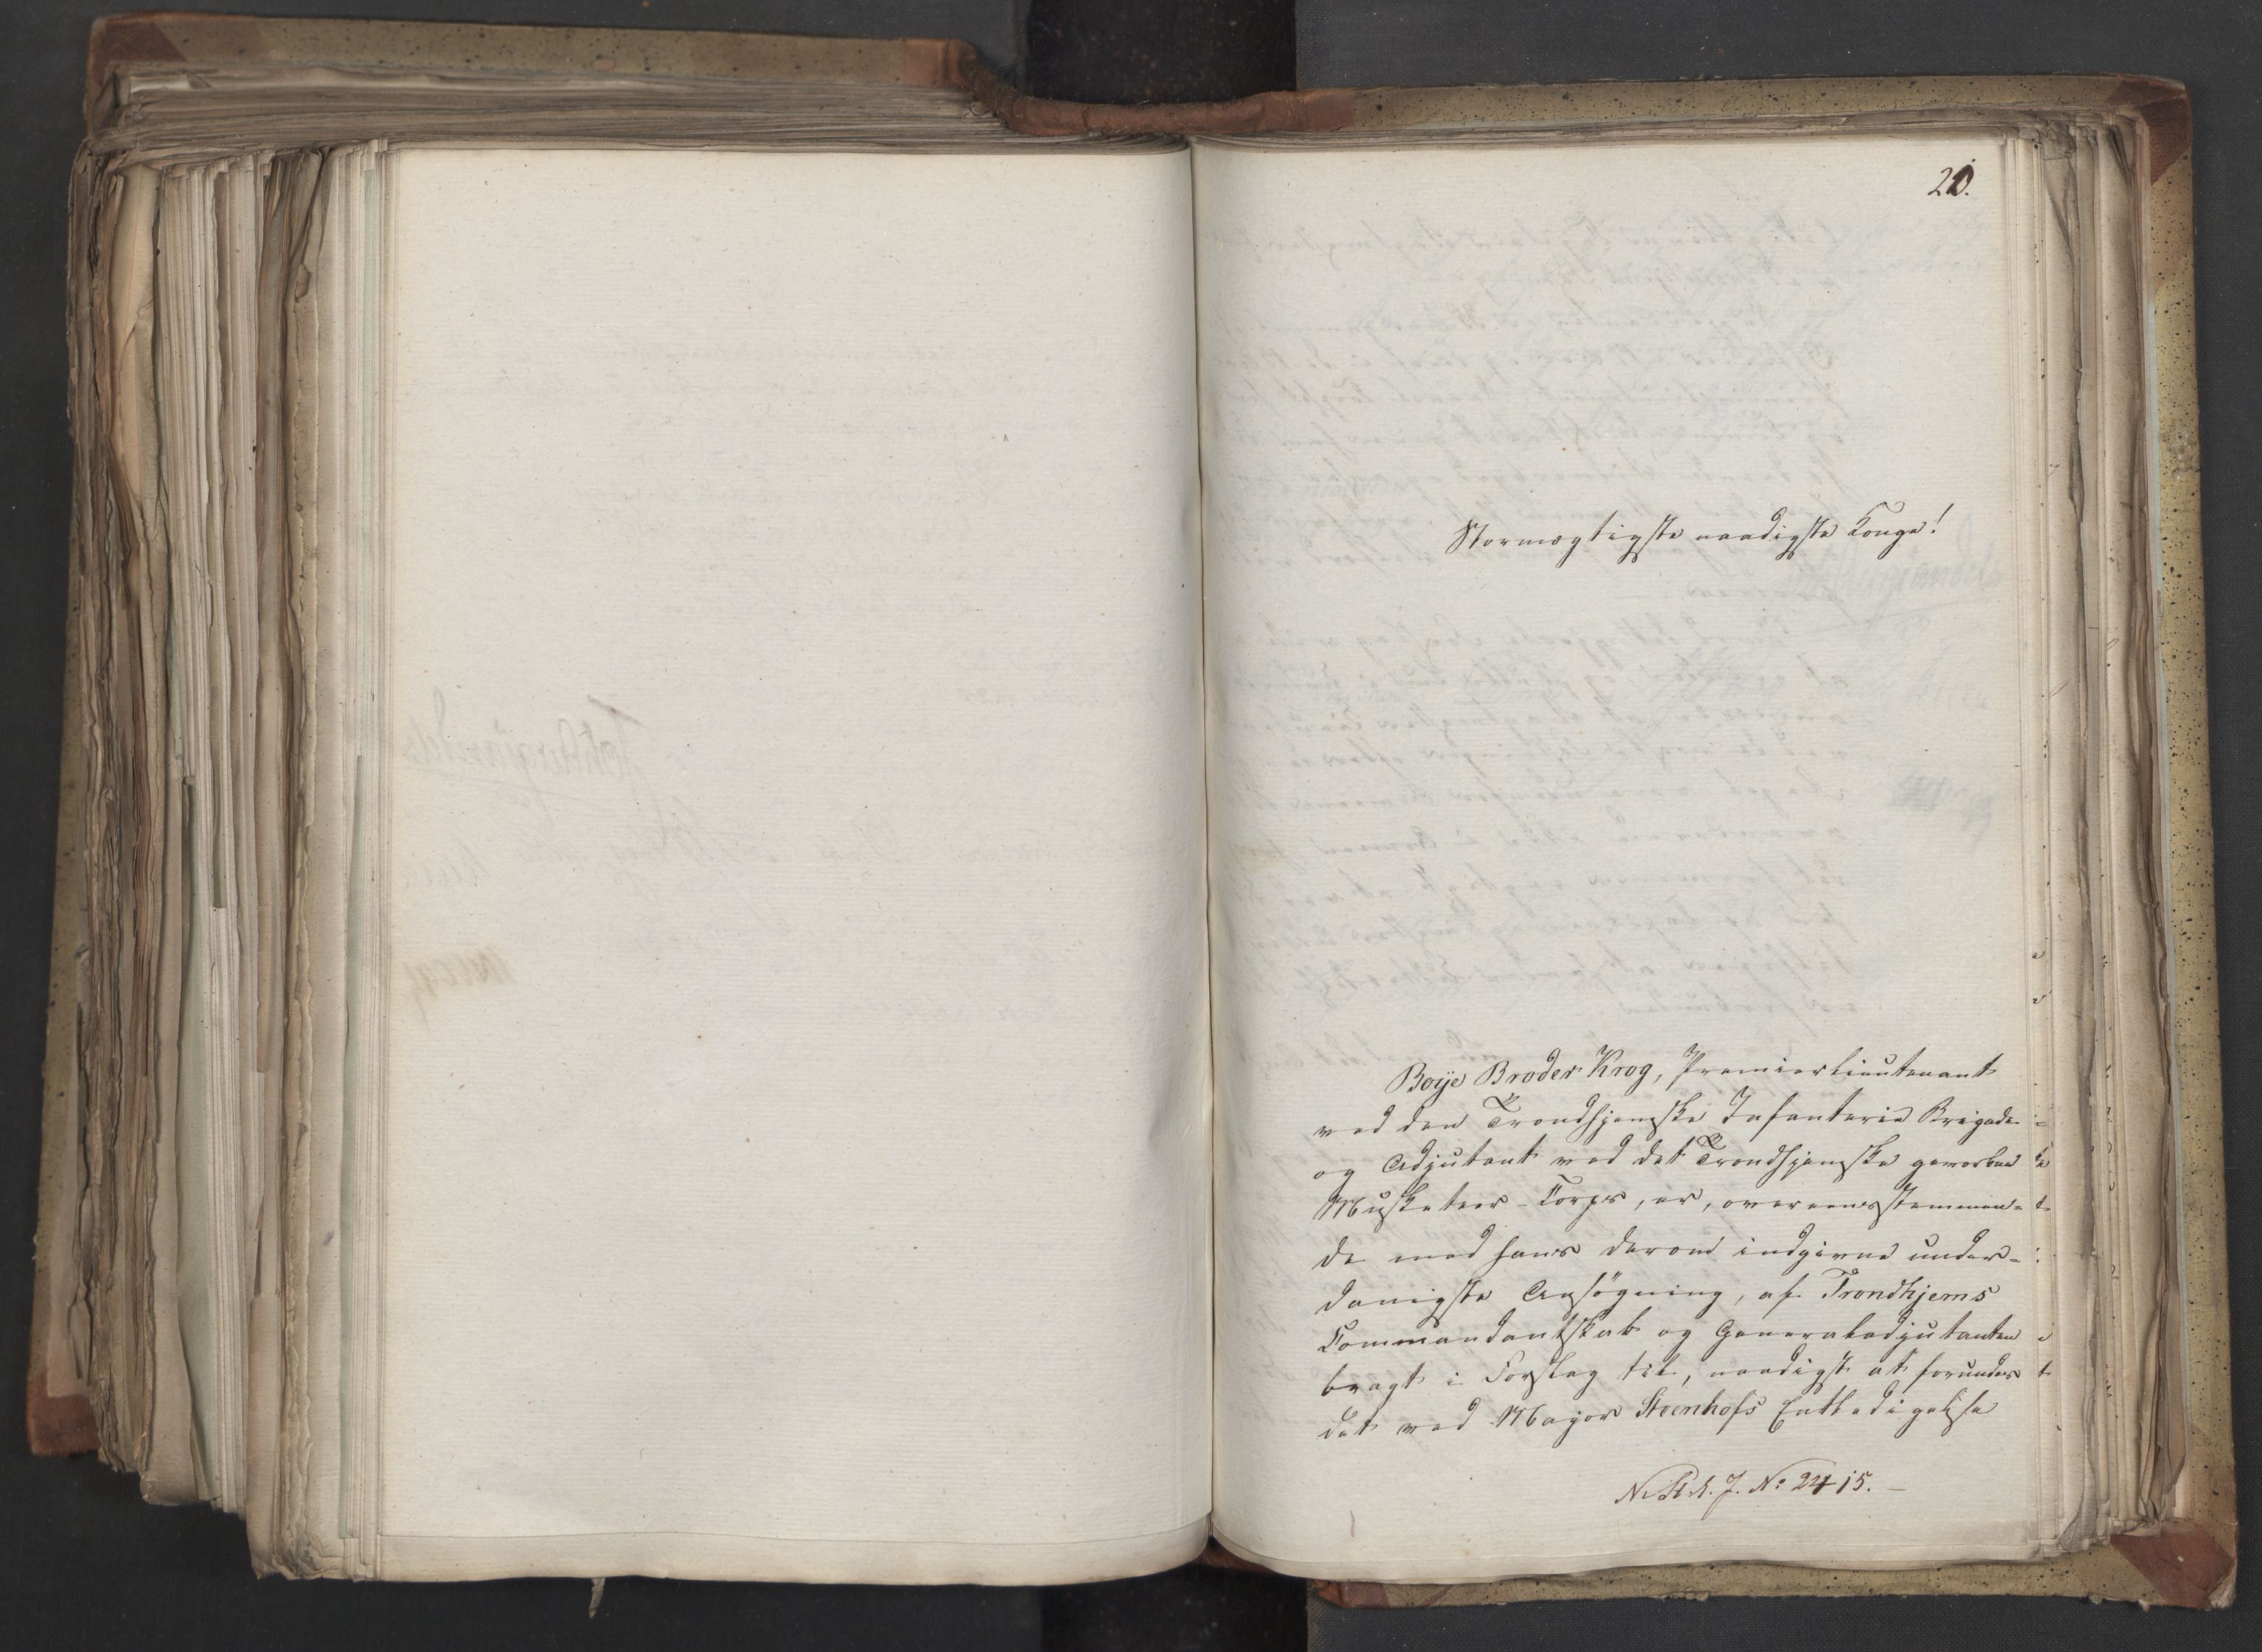 20.
Stormægtigste naadigste Konge!
Boije Broder Krog, Premierlieutenant
ved den Trondhjemske Infanterie Brigade
og Adjutant ved det Trondhjemske gevorbne
Musketeer-Corps, er, overeensstemmen-
de med hans derom indgivne under-
danigste Ansøgning, af Trondhjems
Commandantskab og Generaladjutanten
bragt i Forslag til, naadigst at forundes
det ved Major Steenhofs Entledigelse
J. No 2415.